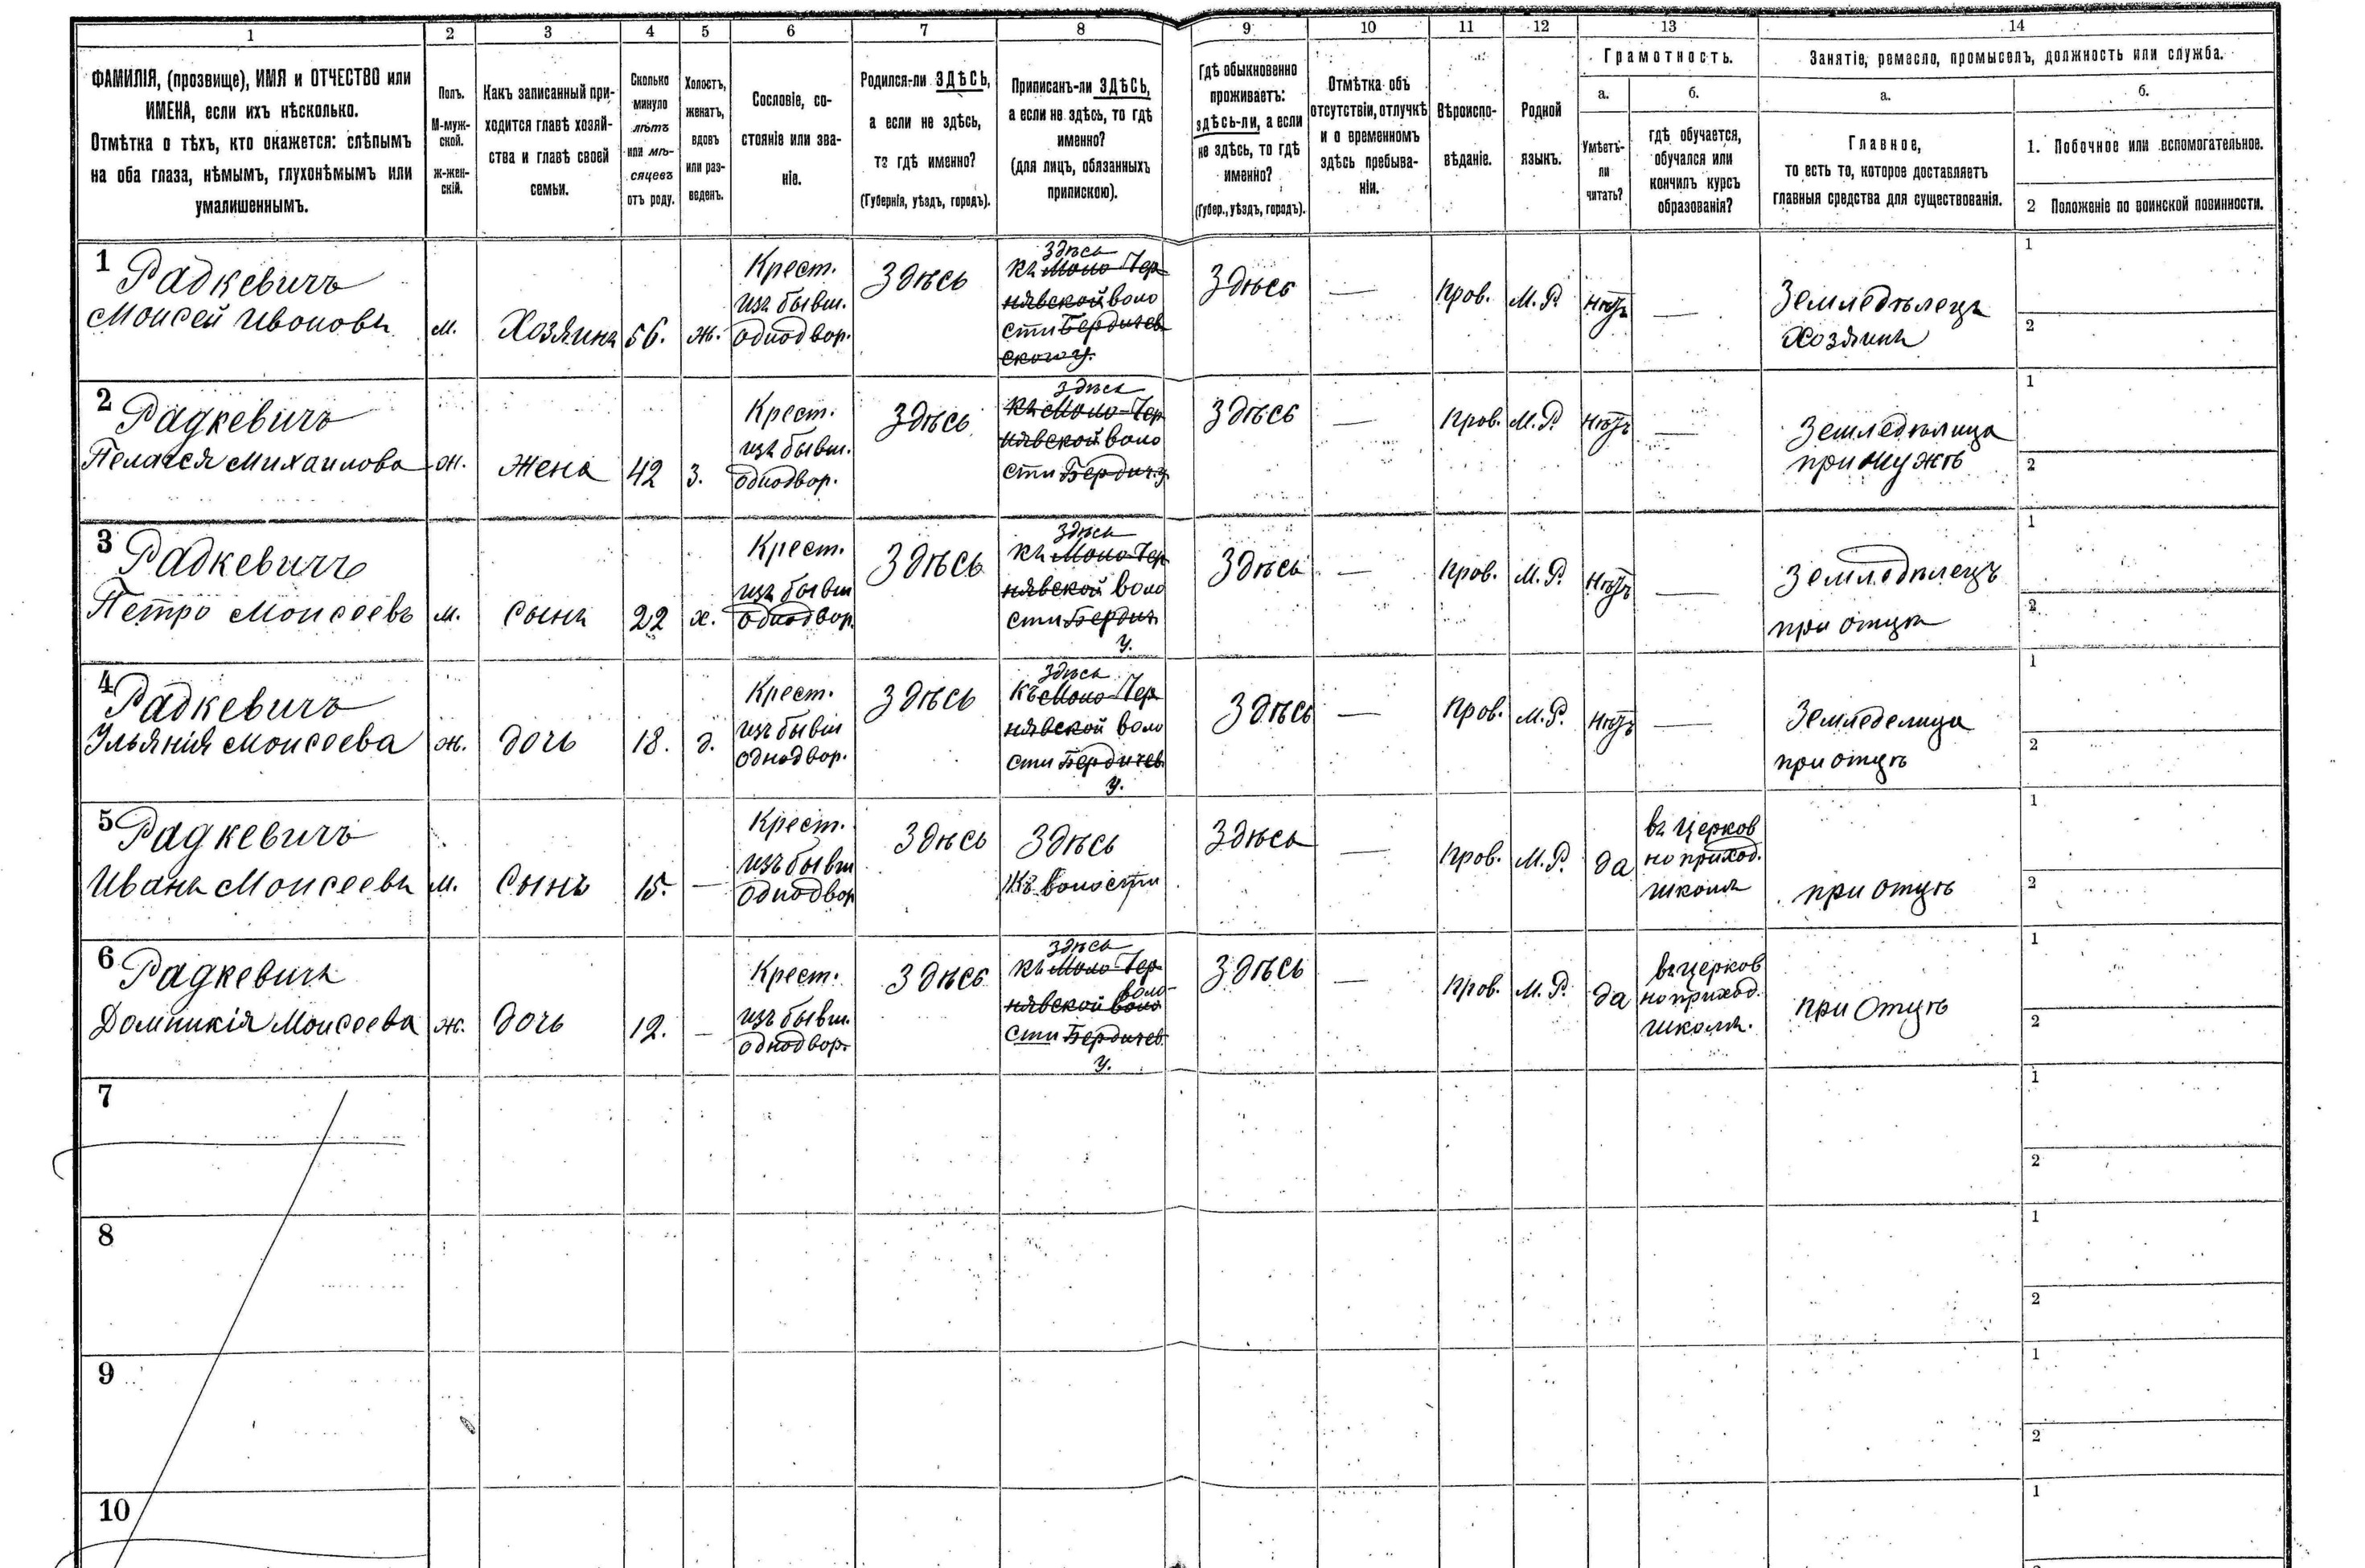 1 2 3 4 5 6 7 8 9 10 11 12 13 14
ФАМИЛІЯ, (прозвище), ИМЯ и ОТЧЕСТВО или
ИМЕНА, если ихъ нѣсколько.
Отмѣтка о тѣхъ, кто окажется: слѣпымъ
на оба глаза, нѣмымъ, глухонѣмымъ или
умалишеннымъ.
Полъ.
М-муж-
ской.
ж-жен-
скій.
Какъ записанный при-
ходится главѣ хозяй-
ства и главѣ своей
семьи.
Сколько
минуло
лѣтъ
или мѣ-
сяцевъ
отъ роду.
Холостъ,
женатъ,
вдовъ
или раз-
веденъ.
Сословіе, со-
стояніе или зва-
ніе.
Родился-ли ЗДѢСЬ,
а если не здѣсь,
то гдѣ именно?
(Губернія, уѣздъ, городъ).
Приписанъ-ли ЗДѢСЬ,
а если не здѣсь, то гдѣ
именно?
(для лицъ, обязанныхъ
припискою).
Гдѣ обыкновенно
проживаетъ:
здѣсь-ли, а если
не здѣсь, то гдѣ
именно?
(Губер., уѣздъ, городъ).
Отмѣтка объ
отсутствіи, отлучкѣ
и о временномъ
здѣсь пребыва-
ніи.
Вѣроиспо-
вѣданіе.
Родной
языкъ.
Грамотность.
а.
Умѣетъ-
ли
читать?
б.
гдѣ обучается,
обучался или
кончилъ курсъ
образованія?
Занятіе, ремесло, промыселъ, должность или служба.
а.
Главное,
то есть то, которое доставляетъ
главныя средства для существованія.
б.
1. Побочное или вспомогательное.
2 Положеніе по воинской повинности.
1
Радкевичъ
Моисей Ивоновъ
м.
Хозяинъ
56.
ж.
Крест.
изъ бывш.
однодвор.
Здѣсь
здѣсь
къ Моло-Чер
нявской воло
сти Бердичев
ского у.
Здѣсь
—
Пров.
М. Р.
Нѣтъ
—
Земледѣлецъ
Хозяинъ
1
2
2
Радкевичъ
Пелагея Михаилова
ж.
Жена
42
з.
Крест.
изъ бывш.
однодвор.
Здѣсь
здѣсь
къ Моло-Чер
нявской воло
сти Бердич. у.
Здѣсь
—
Пров.
М. Р.
Нѣтъ
—
Земледѣлица
при мужѣ
1
2
3
Радкевичъ
Петро Моисеевъ
м.
Сынъ
22
х.
Крест.
изъ бывш
однодвор.
Здѣсь
здѣсь
къ Моло-Чер
нявской воло
сти Бердич.
у.
Здѣсь
—
Пров.
М. Р.
Нѣтъ
—
Земледѣлецъ
при отцѣ
1
2
4
Радкевичъ
Ульянія Моисеева
ж.
дочь
18.
д.
Крест.
изъ бывш
однодвор.
Здѣсь
здѣсь
къ Моло-Чер
нявской воло
сти Бердичев.
у.
Здѣсь
—
Пров.
М. Р.
Нѣтъ
—
Земледелица
при отцѣ
1
2
5
Радкевичъ
Иванъ Моисеевъ
м.
Сынъ
15.
—
Крест.
изъ бывш
однодвор
Здѣсь
Здѣсь
къ волости
Здѣсь
—
Пров.
М. Р.
да
въ церков
но приход.
школѣ
при отцѣ
1
2
6
Радкевичъ
Домникія Моисеева
ж.
дочь
12.
—
Крест.
изъ бывш.
однодвор.
Здѣсь
здѣсь
къ Моло-Чер
воло-
нявской воло
сти Бердичев.
у.
Здѣсь
—
Пров.
М. Р.
да
въ церков
но приход.
школѣ.
при отцѣ
1
2
7
1
2
8
1
2
9
1
2
10
1